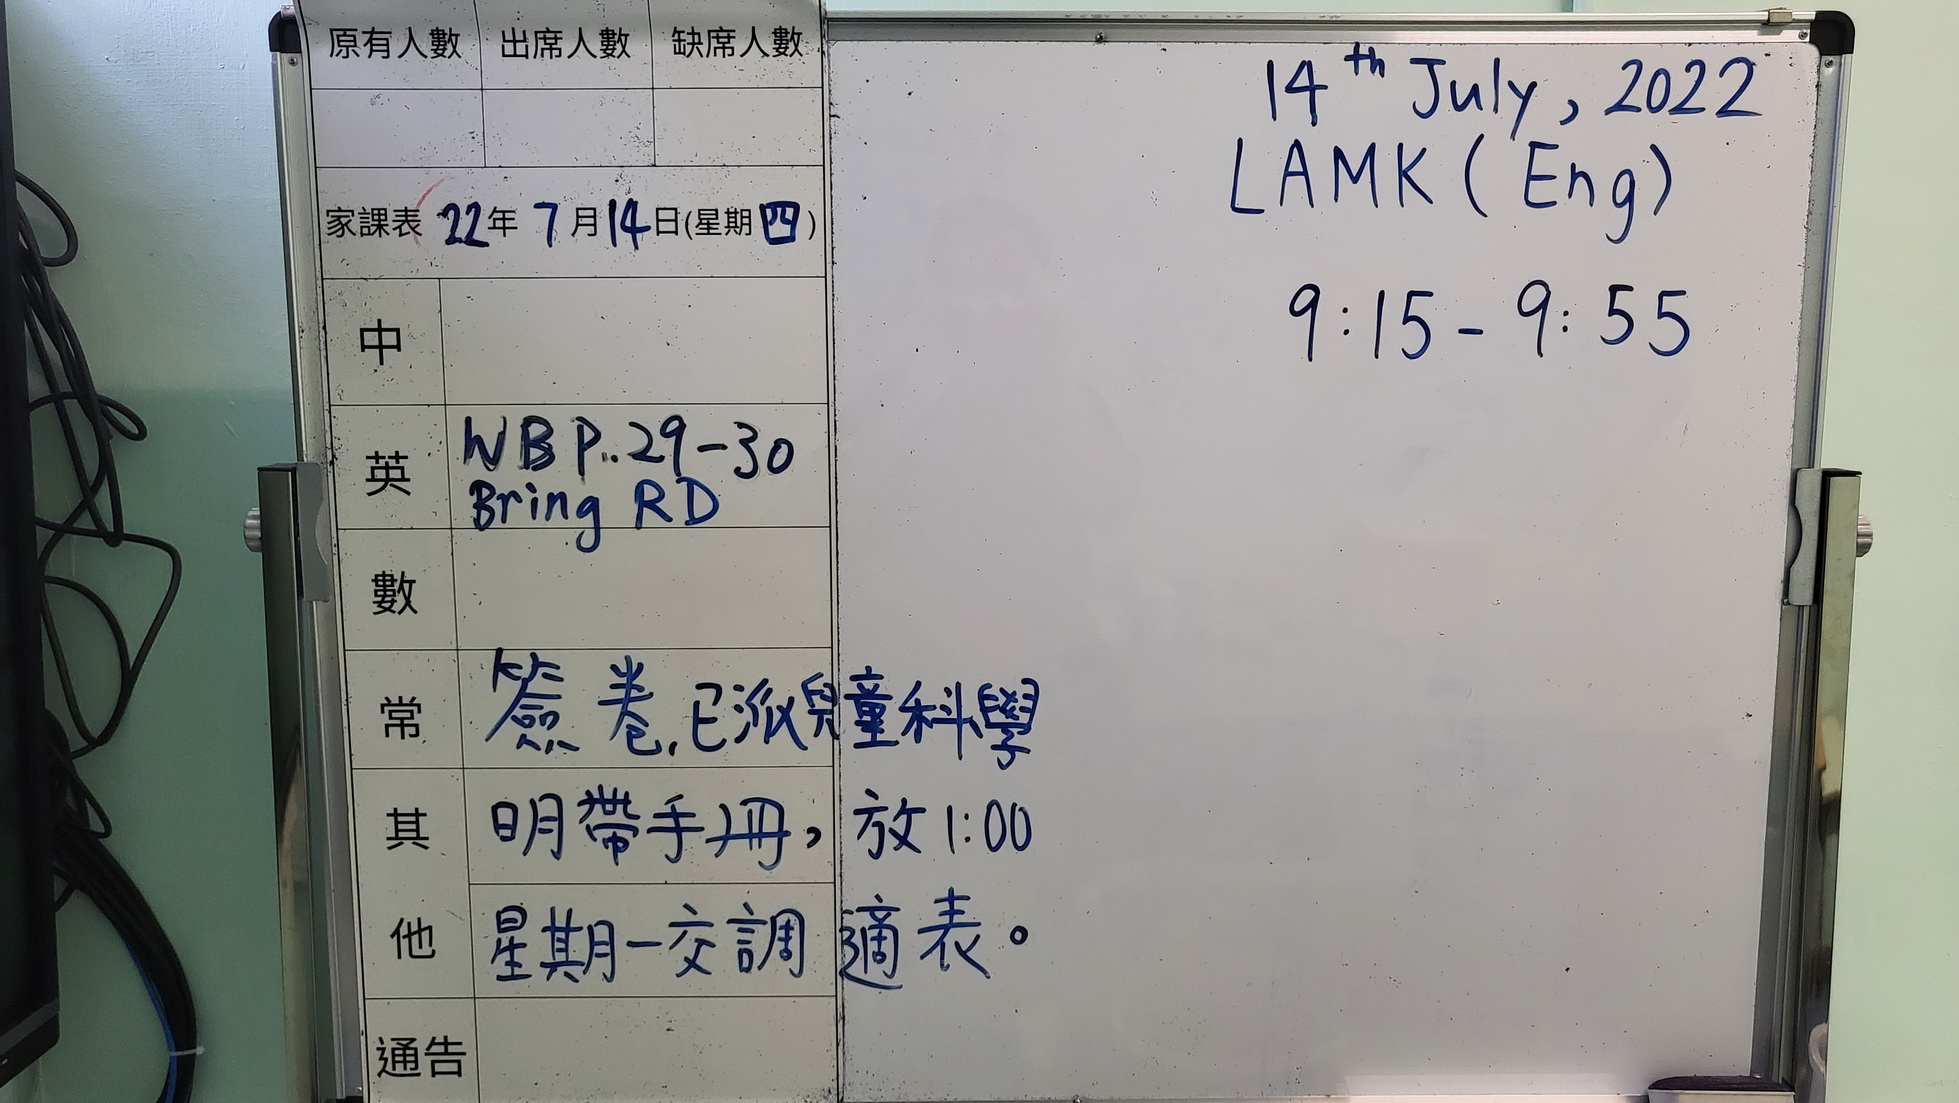 原有人數 出席人數 缺席人數
家課表 22年 7月14日(星期四)
中
英 WB P..29-30
Bring RD
數
常 簽卷,已派兒童科學
其 明帶手冊，放1:00
他 星期一交調適表。
通告
14th July, 2022
LAMK (Eng)
9:15-9:55